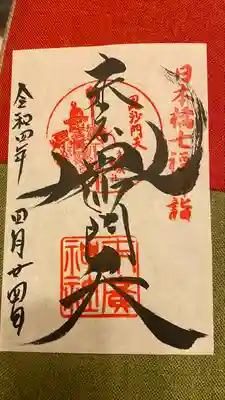 日本橋七福神詣
毘沙門天
毘沙門天
末廣神社
令和四年 四月廿四日